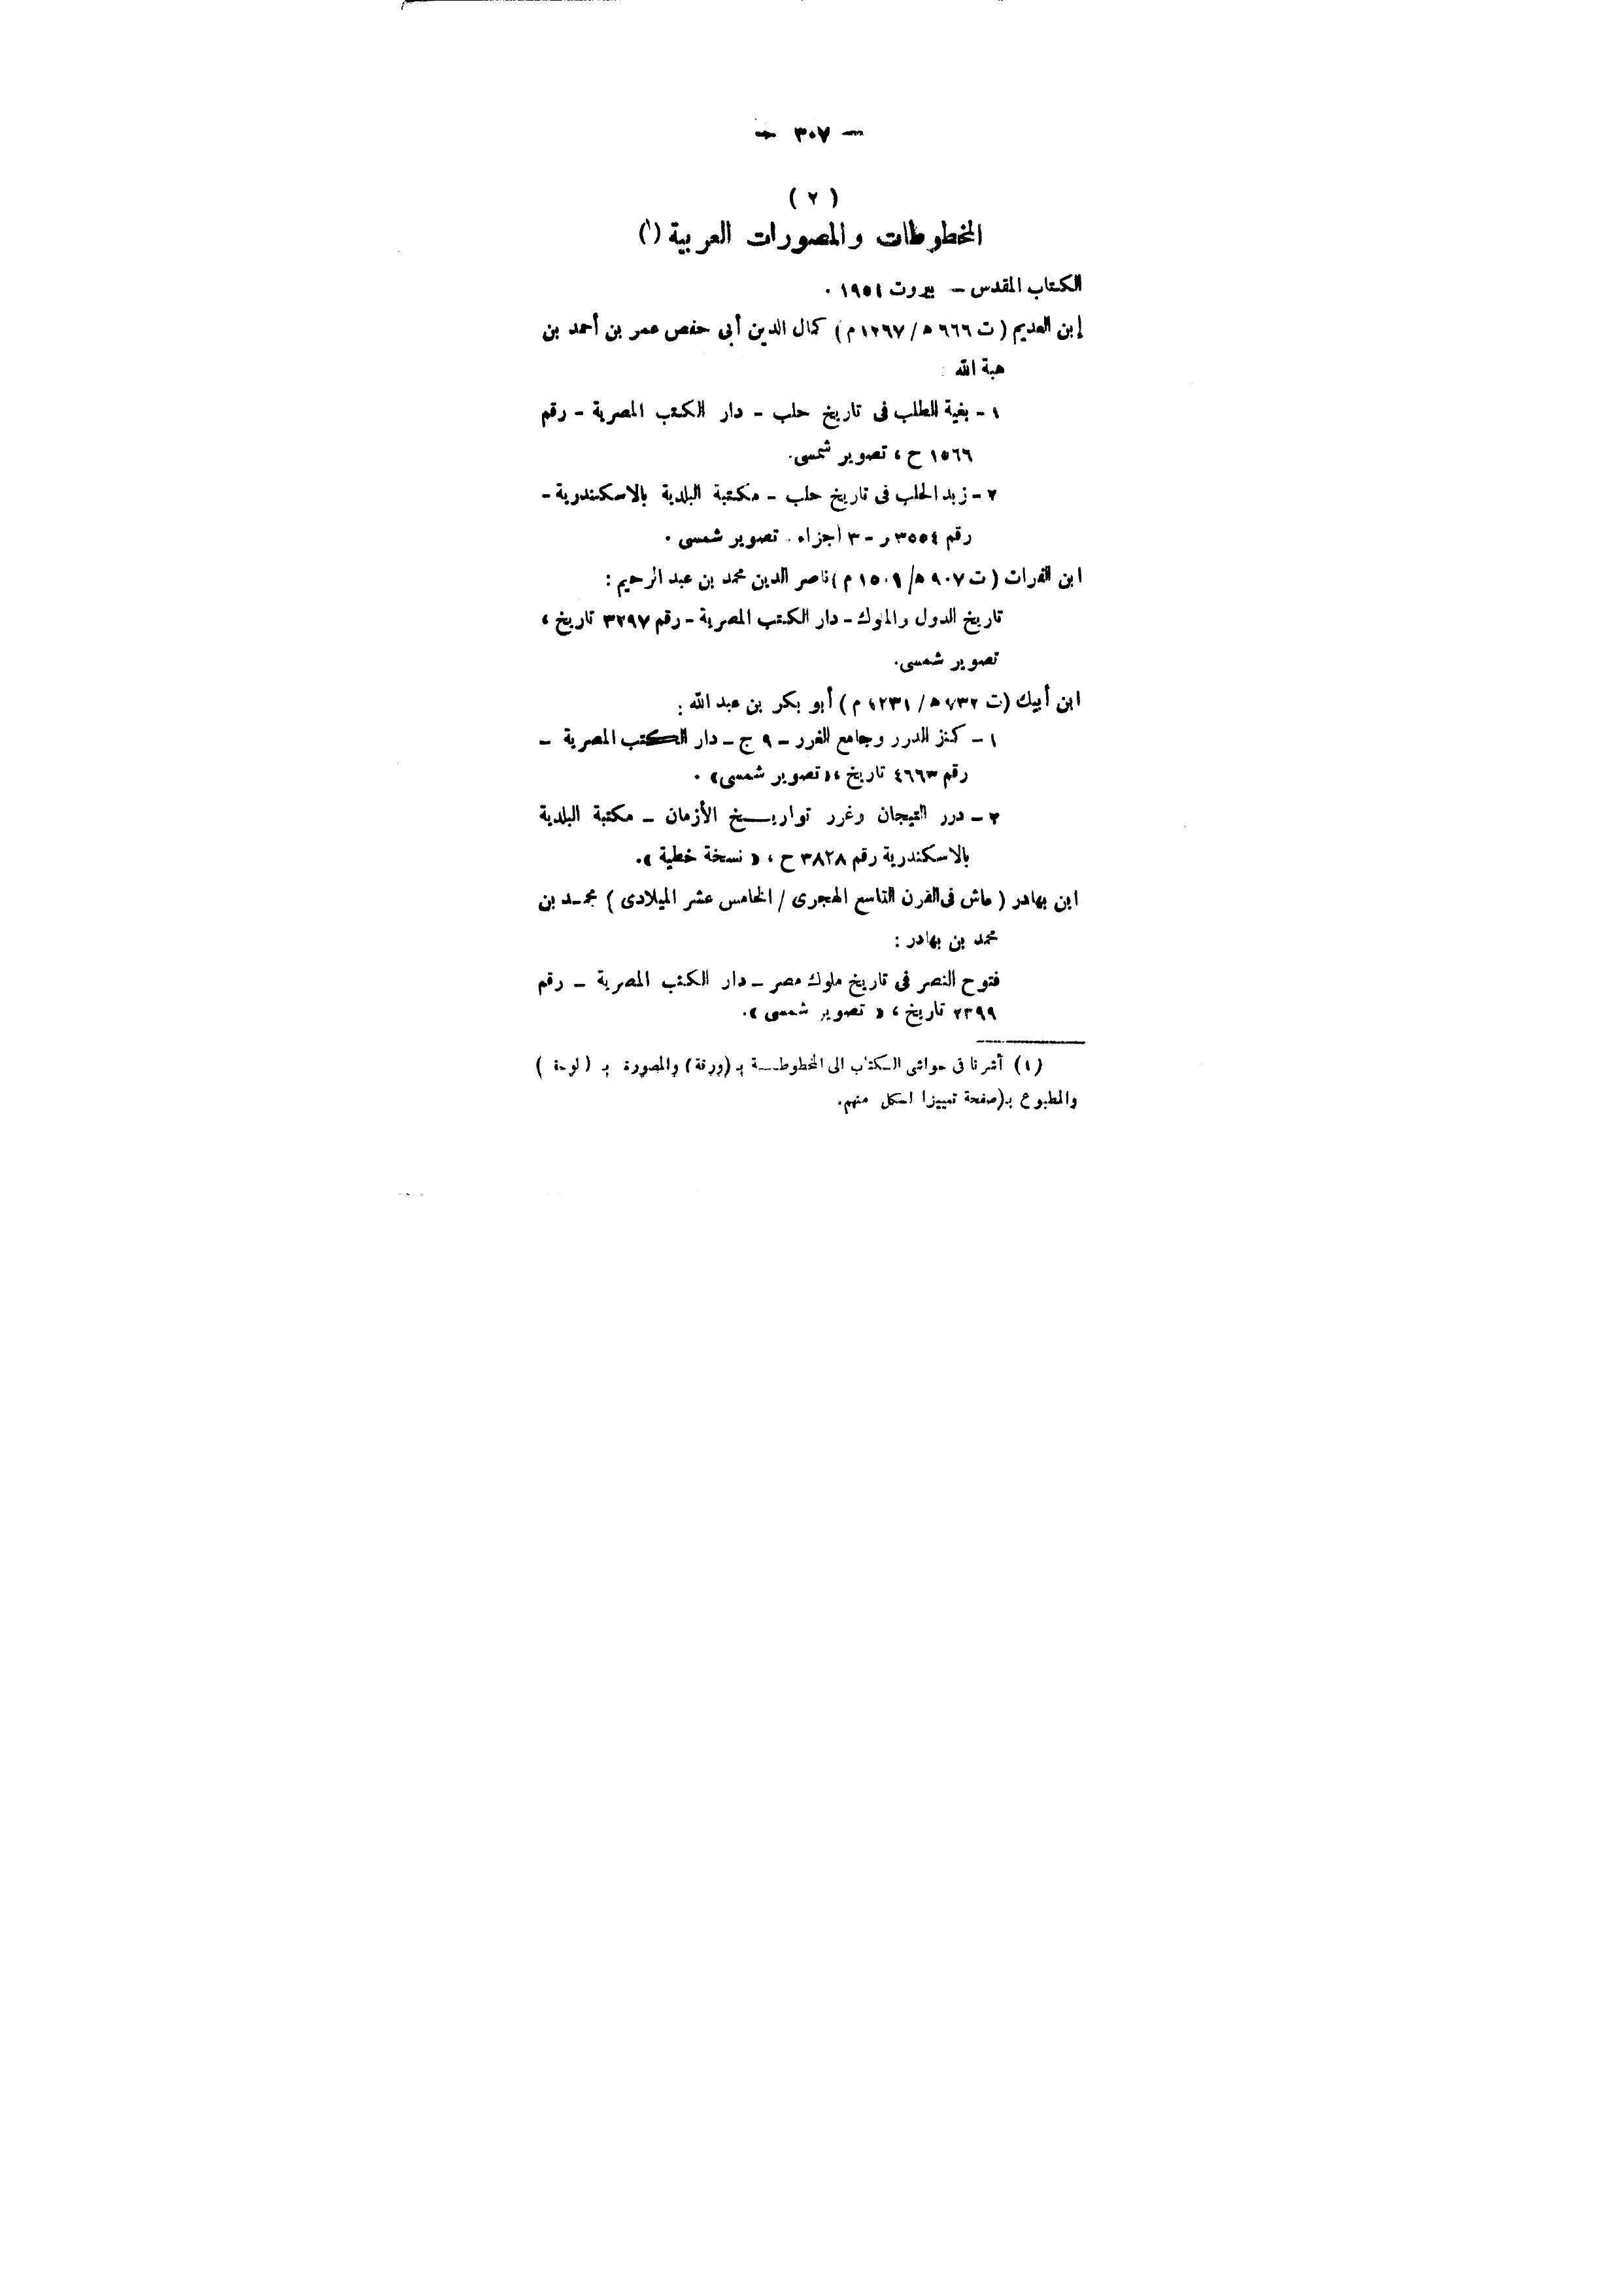 — ٣٠٧ —
( ٢ )
المخطوطات والمصورات العربية (١)
الكتاب المقدس – بيروت ١٩٥١ .
إبن العديم ( ت ٦٦٦ ه / ١٢٦٧ م ) كمال الدين أبى حفص عمر بن أحمد بن
هبة الله :
١ – بغية الطلب فى تاريخ حلب – دار الكتب المصرية – رقم
١٥٦٦ ح ، تصوير شمسى.
٢ – زبد الحلب فى تاريخ حلب – مكتبة البلدية بالاسكندرية –
رقم ٣٥٥٤ ر – ٣ أجزاء . تصوير شمسى .
ابن الفرات ( ت ٩٠٧ ه / ١٥٠١ م ) ناصر الدين محمد بن عبد الرحيم :
تاريخ الدول والملوك – دار الكتب المصرية – رقم ٣٢٩٧ تاريخ ،
تصوير شمسى.
ابن أيبك (ت ٧٣٢ ه / ١٢٣١ م ) أبو بكر بن عبد الله :
١ – كنز الدرر وجامع الغرر – ٩ ج – دار الكتب المصرية –
رقم ٤٦٦٣ تاريخ ، «تصوير شمسى» .
٢ – درر التيجان وغرر تواريـــخ الأزمان – مكتبة البلدية
بالاسكندرية رقم ٣٨٢٨ ح ، « نسخة خطية ».
ابن بهادر ( عاش فى القرن التاسع الهجرى / الخامس عشر الميلادى ) محمـد بن
محمد بن بهادر :
فتوح النصر فى تاريخ ملوك مصر – دار الكتب المصرية – رقم
٢٣٩٩ تاريخ ، « تصوير شمسى ».
(١) أشرنا فى حواشى الـكتاب الى المخطوطـــة بـ (ورقة) والمصورة بـ ( لوحة )
والمطبوع بـ(صفحة تمييزا لـكل منهم.